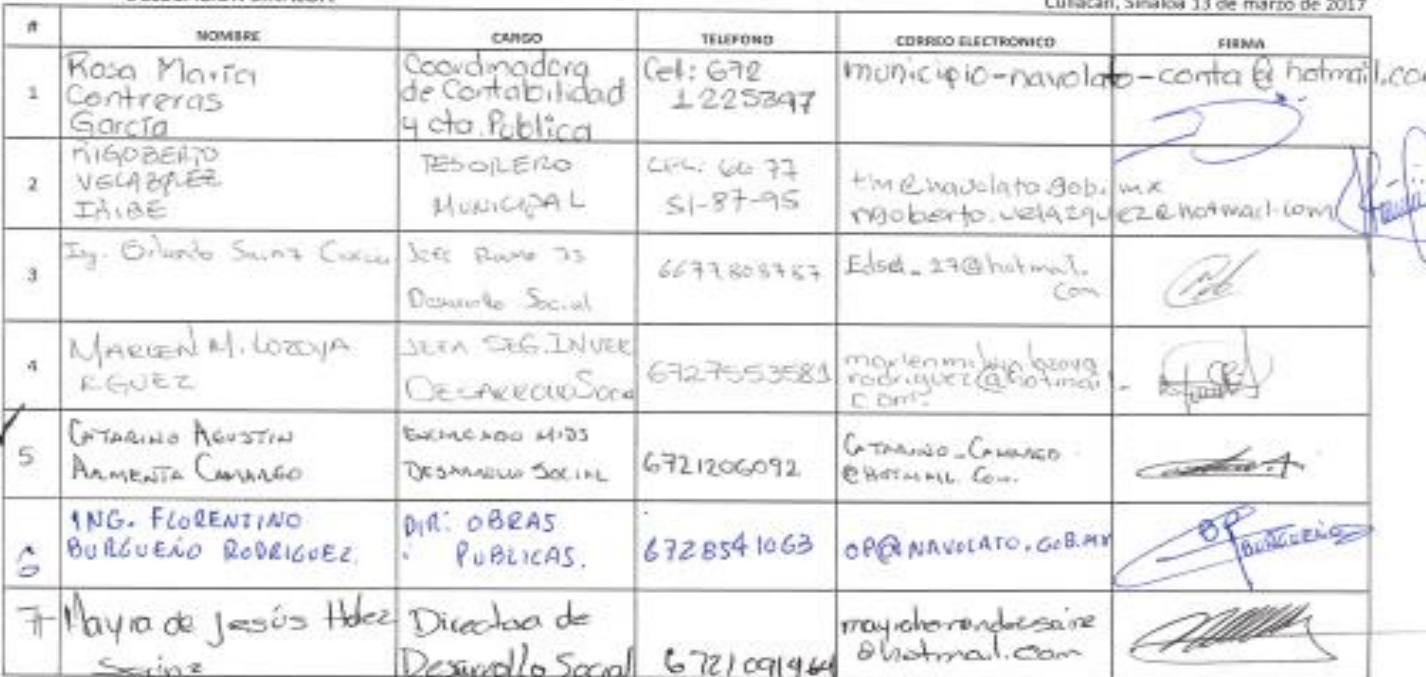 Culiacán, Sinaloa 13 de marzo de 2017
# NOMBRE CARGO TELEFONO CORREO ELECTRONICO FIRMA
1
Rosa María
Contreras
García
Coordinadora
de Contabilidad
y cta. Publica
Cel: 672
1225397
municipio-navolato-conta@hotmail.co
2
RIGOBERTO
VELAZQUEZ
IRIBE
TESORERO
MUNICIPAL
CEL: 66 77
51-87-95
tm@navolato.gob.mx
rigoberto.velazquez@hotmail.com
3
Ing. Orlando Sainz
Jefe Ramo 33
Desarrollo Social
6677803787
Edsel_27@hotmail.
com
4
MARLEN M. LOZOYA
RGUEZ
JEFA SEG. INVER
DESARROLLO Social
6727553581
rodriguez@hotmail.
com
5
CATARINO AGUSTIN
ARMENTA CAMARGO
ENCARGADO MIDS
DESARROLLO SOCIAL
6721206092
CATARINO_CAMARGO
@HOTMAIL.COM.
6
ING. FLORENTINO
BURGUEÑO RODRIGUEZ.
DIR. OBRAS
PUBLICAS.
6728541063
OP@NAVOLATO.GOB.MX
OP
BURGUEÑO
7
Mayra de Jesús Hdez
Sainz
Directora de
Desarrollo Social
6721091464
mayrahernandezsainz
@hotmail.com